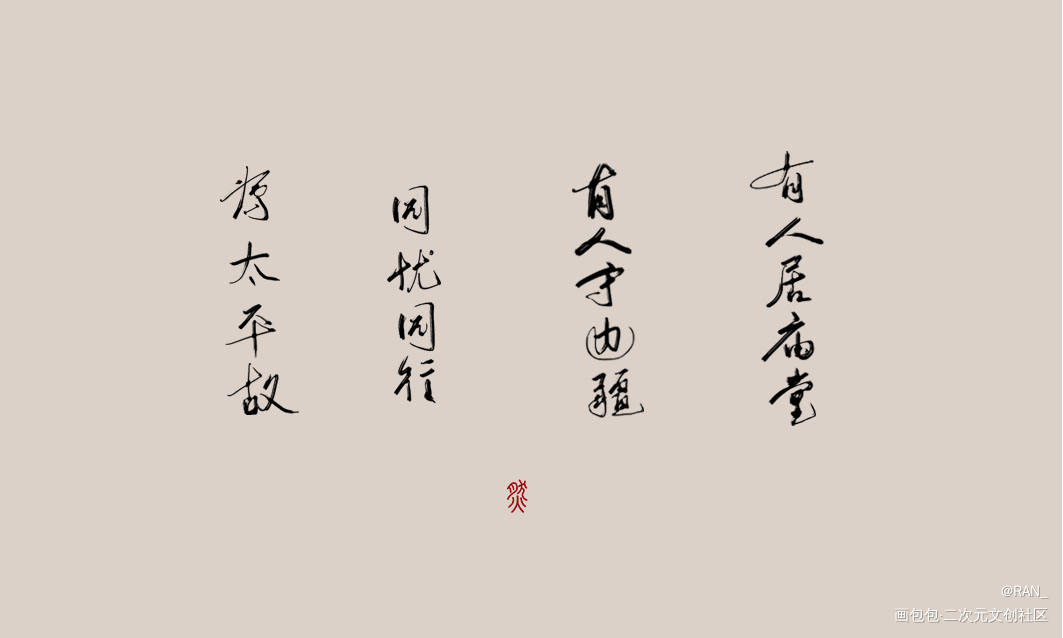 有人居庙堂
有人守边疆
同忧同往
为太平故
然
@RAN_
画包包·二次元文创社区